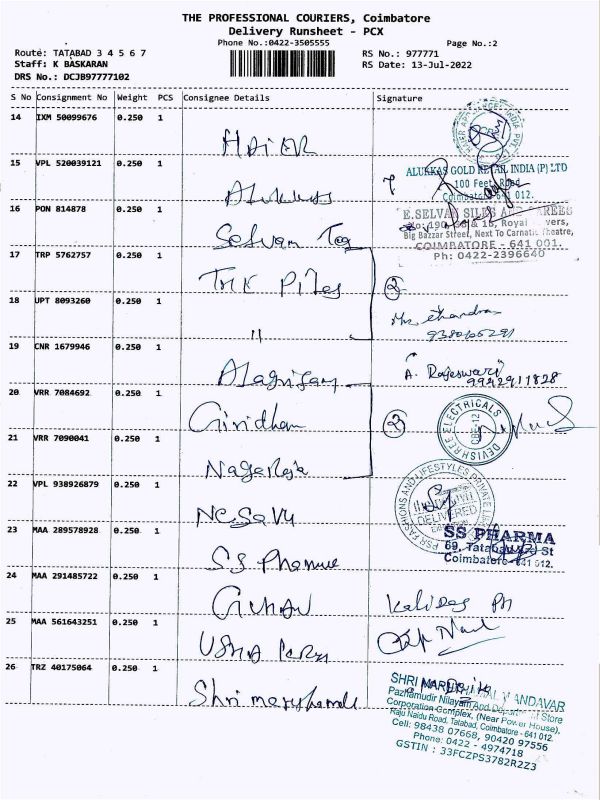 THE PROFESSIONAL COURIERS, Coimbatore
Delivery Runsheet - PCX
Phone No.:0422-3505555 Page No.:2
Route: TATABAD 3 4 5 6 7 RS No.: 977771
Staff: K BASKARAN RS Date: 13-Jul-2022
DRS No.: DCJB97777102
S No Consignment No Weight PCS Consignee Details Signature
14 IXM 50099676 0.250 1
HAIER
15 VPL 520039121 0.250 1
ALUKKAS GOLD RETAIL INDIA (P) LTD
100 Feet Road
Coimbatore-641 012.
Alukkas
16 PON 814878 0.250 1
E.SELVAM SILKS AND SAREES
Big Bazzar Street, Next To Carnatic Theatre,
COIMBATORE - 641 001.
Ph: 0422-2396640
Selvam Tex
17 TRP 5762757 0.250 1
TMK Piles
2
18 UPT 8093260 0.250 1
"
Chandra
19 CNR 1679946 0.250 1
A. Rajeswari
9942911828
20 VRR 7084692 0.250 1
Giridhar
2
DEVISHREE ELECTRICALS
CBE-12
21 VRR 7090041 0.250 1
Nagaraja
22 VPL 938926879 0.250 1
Nesavu
PSR FASHIONS AND LIFESTYLES PRIVATE
DELIVERED
23 MAA 289578928 0.250 1
SS PHARMA
69, Tatabad St
Coimbatore-641 012.
SS Pharma
24 MAA 291485722 0.250 1
25 MAA 561643251 0.250 1
USHA
26 TRZ 40175064 0.250 1
Pazhamudir Nilayam And Store
Corporation Complex, (Near Power House),
Raju Naidu Road, Tatabad, Coimbatore - 641 012.
Cell: 98438 07668, 90420 97556
Phone: 0422 - 4974718
GSTIN : 33FCZPS3782R2Z3